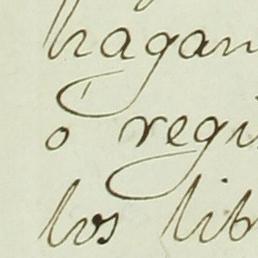 hagan
o regi
los lib